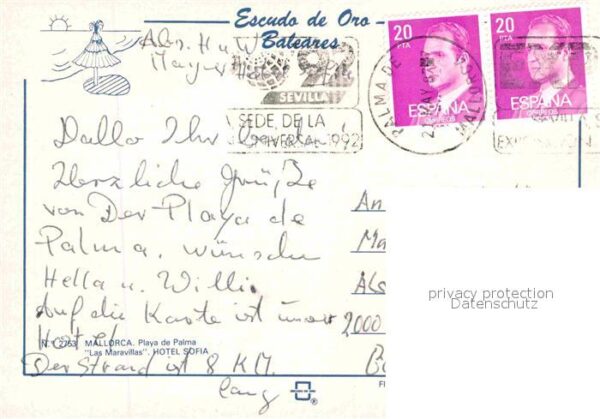 Escudo de Oro
Baleares
Abs. H u W
Mayer
92
SEVILLA
SEDE DE LA
UNIVERSAL 1992
20
PTA
ESPAÑA
CORREOS
20
PTA
ESPAÑA
CORREOS
PALMA DE MALLORCA
MAY
Hallo Ihr
Herzliche Grüße
von Der Playa de
Palma. wünschen
Hella u. Willi.
Auf die Karte ist unser
Hotel
N.º 2753 MALLORCA. Playa de Palma
"Las Maravillas". HOTEL SOFIA
Der Strand ist 8 KM.
lang
An
Ma
Als
2000
privacy protection
Datenschutz
FI